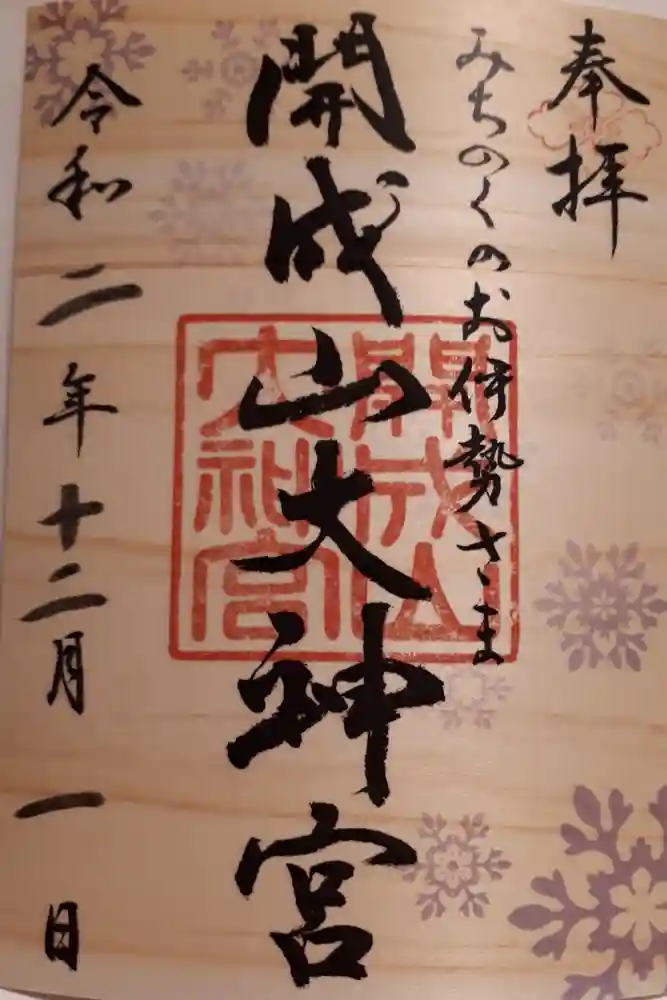 奉拝
みちのくのお伊勢さま
開成山大神宮
開成山
大神宮
令和二年十二月一日